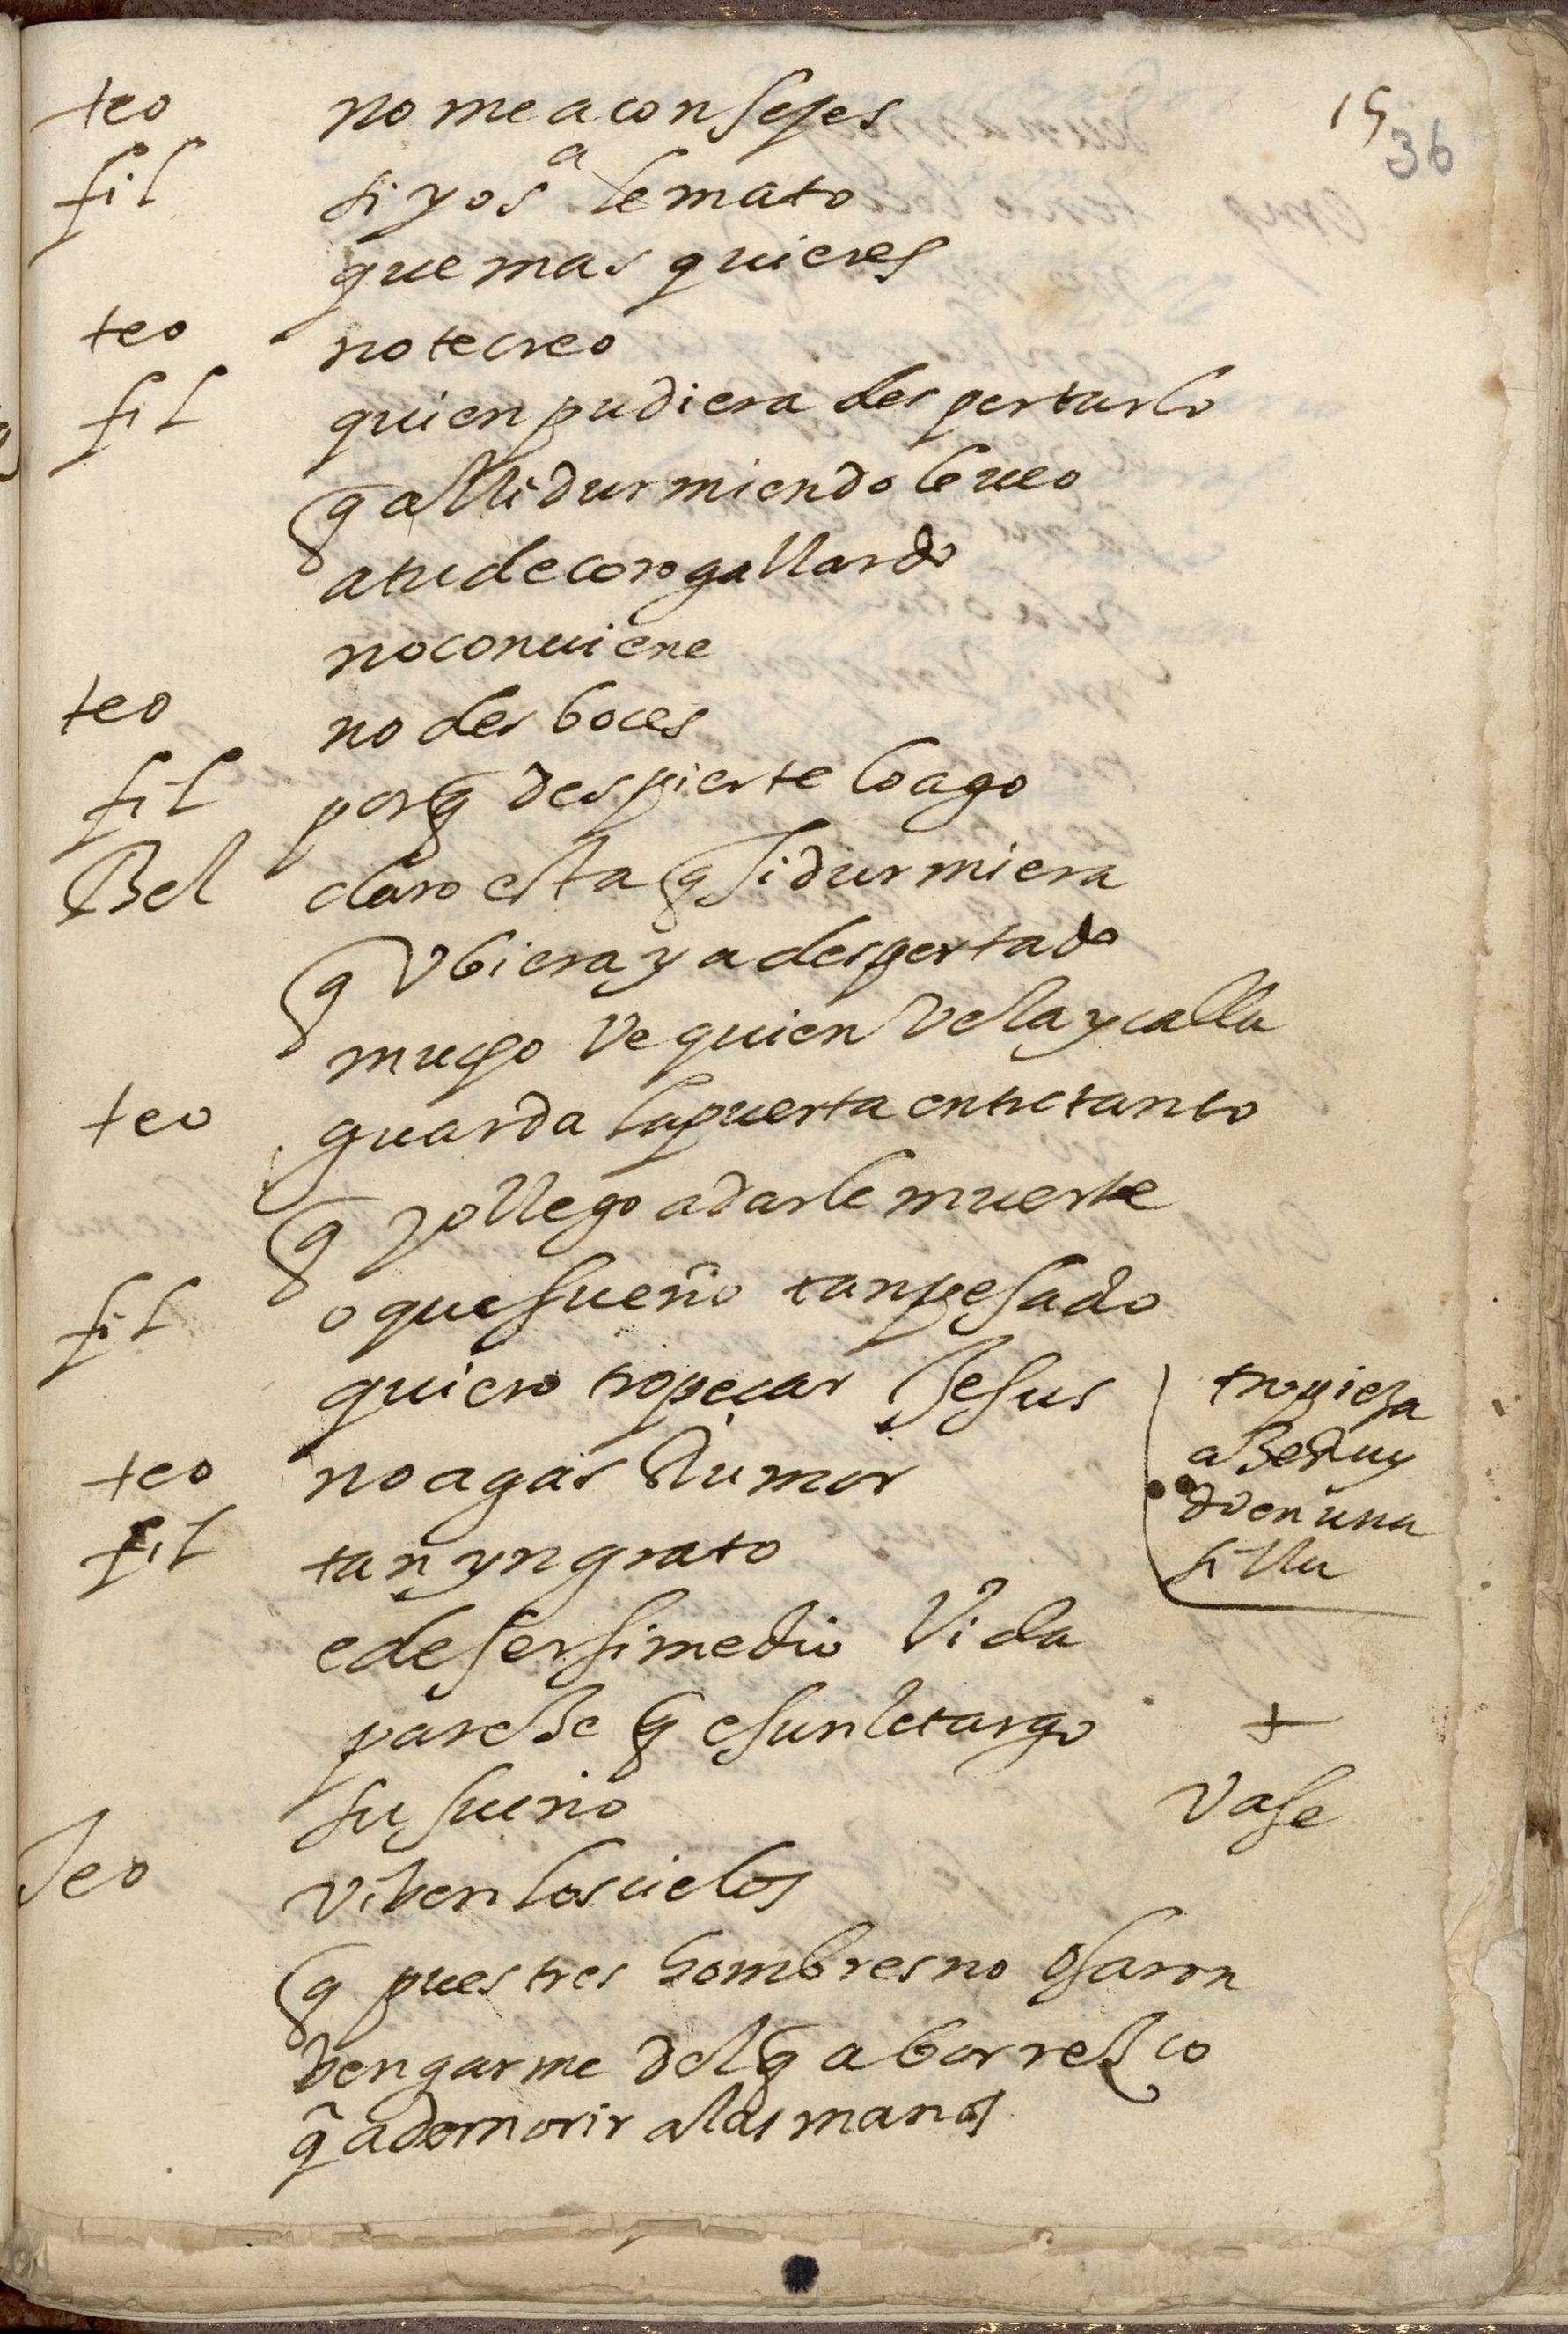 15
36
teo no me aconsejes
fil si yo sa le mato
que mas quieres
teo no te creo
fil quien pudiera despertarlo
q alli durmiendo le veo
a tu decoro gallardo
no conuiene
teo no des boces
fil porq despierte lo ago
Bel claro esta q si durmiera
q vbiera ya despertado
mucho ve quien vela y calla
teo guarda la puerta entretanto
q yo llego a darle muerte
fil o que sueño tan pesado
quiero tropeçar Jesus
tropieza
a Belduy
do en una
silla
teo no agas Rumor
fil tan yngrato
e de ser si me dio Vida
paresse q es un letargo
+
su sueño
vase
Teo viben los cielos
q pues tres hombres no osaron
bengarme del q aborresco
q̃ a de morir a las manos